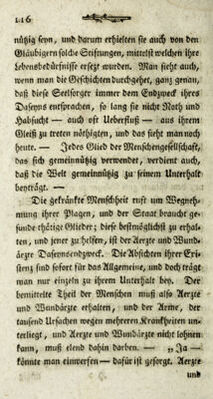 116
nützig seyn, und darum erhielten sie auch von den
Gläubigern solche Stiftungen, mittelst welchen ihre
Lebensbedürfnisse ersetzt wurden. Man sieht auch,
wenn man die Geschichten durchgehet, ganz genau,
daß diese Seelsorger immer dem Endzweck ihres
Daseyns entsprachen, so lang sie nicht Noth und
Habsucht — auch oft Ueberfluß — aus ihrem
Gleiß zu treten nöthigten, und das sieht man noch
heute. — Jedes Glied der Menschengesellschaft,
das sich gemeinnützig verwendet, verdient auch,
daß die Welt gemeinnützig zu seinem Unterhalt
beyträgt. —
Die gekränkte Menschheit ruft um Wegneh-
mung ihrer Plagen, und der Staat braucht ge-
sunde thätige Glieder; diese bestmöglichst zu erhal-
ten, und jener zu helfen, ist der Aerzte und Wund-
ärzte Daseynsendzweck. Die Absichten ihrer Exi-
stenz sind sofort für das Allgemeine, und doch trägt
man nur einzeln zu ihrem Unterhalt bey. Der
bemittelte Theil der Menschen muß also Aerzte
und Wundärzte erhalten, und der Arme, der
tausend Ursachen wegen mehreren Krankheiten un-
terliegt, und Aerzte und Wundärzte nicht lohnen
kann, muß elend dahin darben. — „Ja —
könnte man einwerfen — dafür ist gesorgt. Aerzte
und